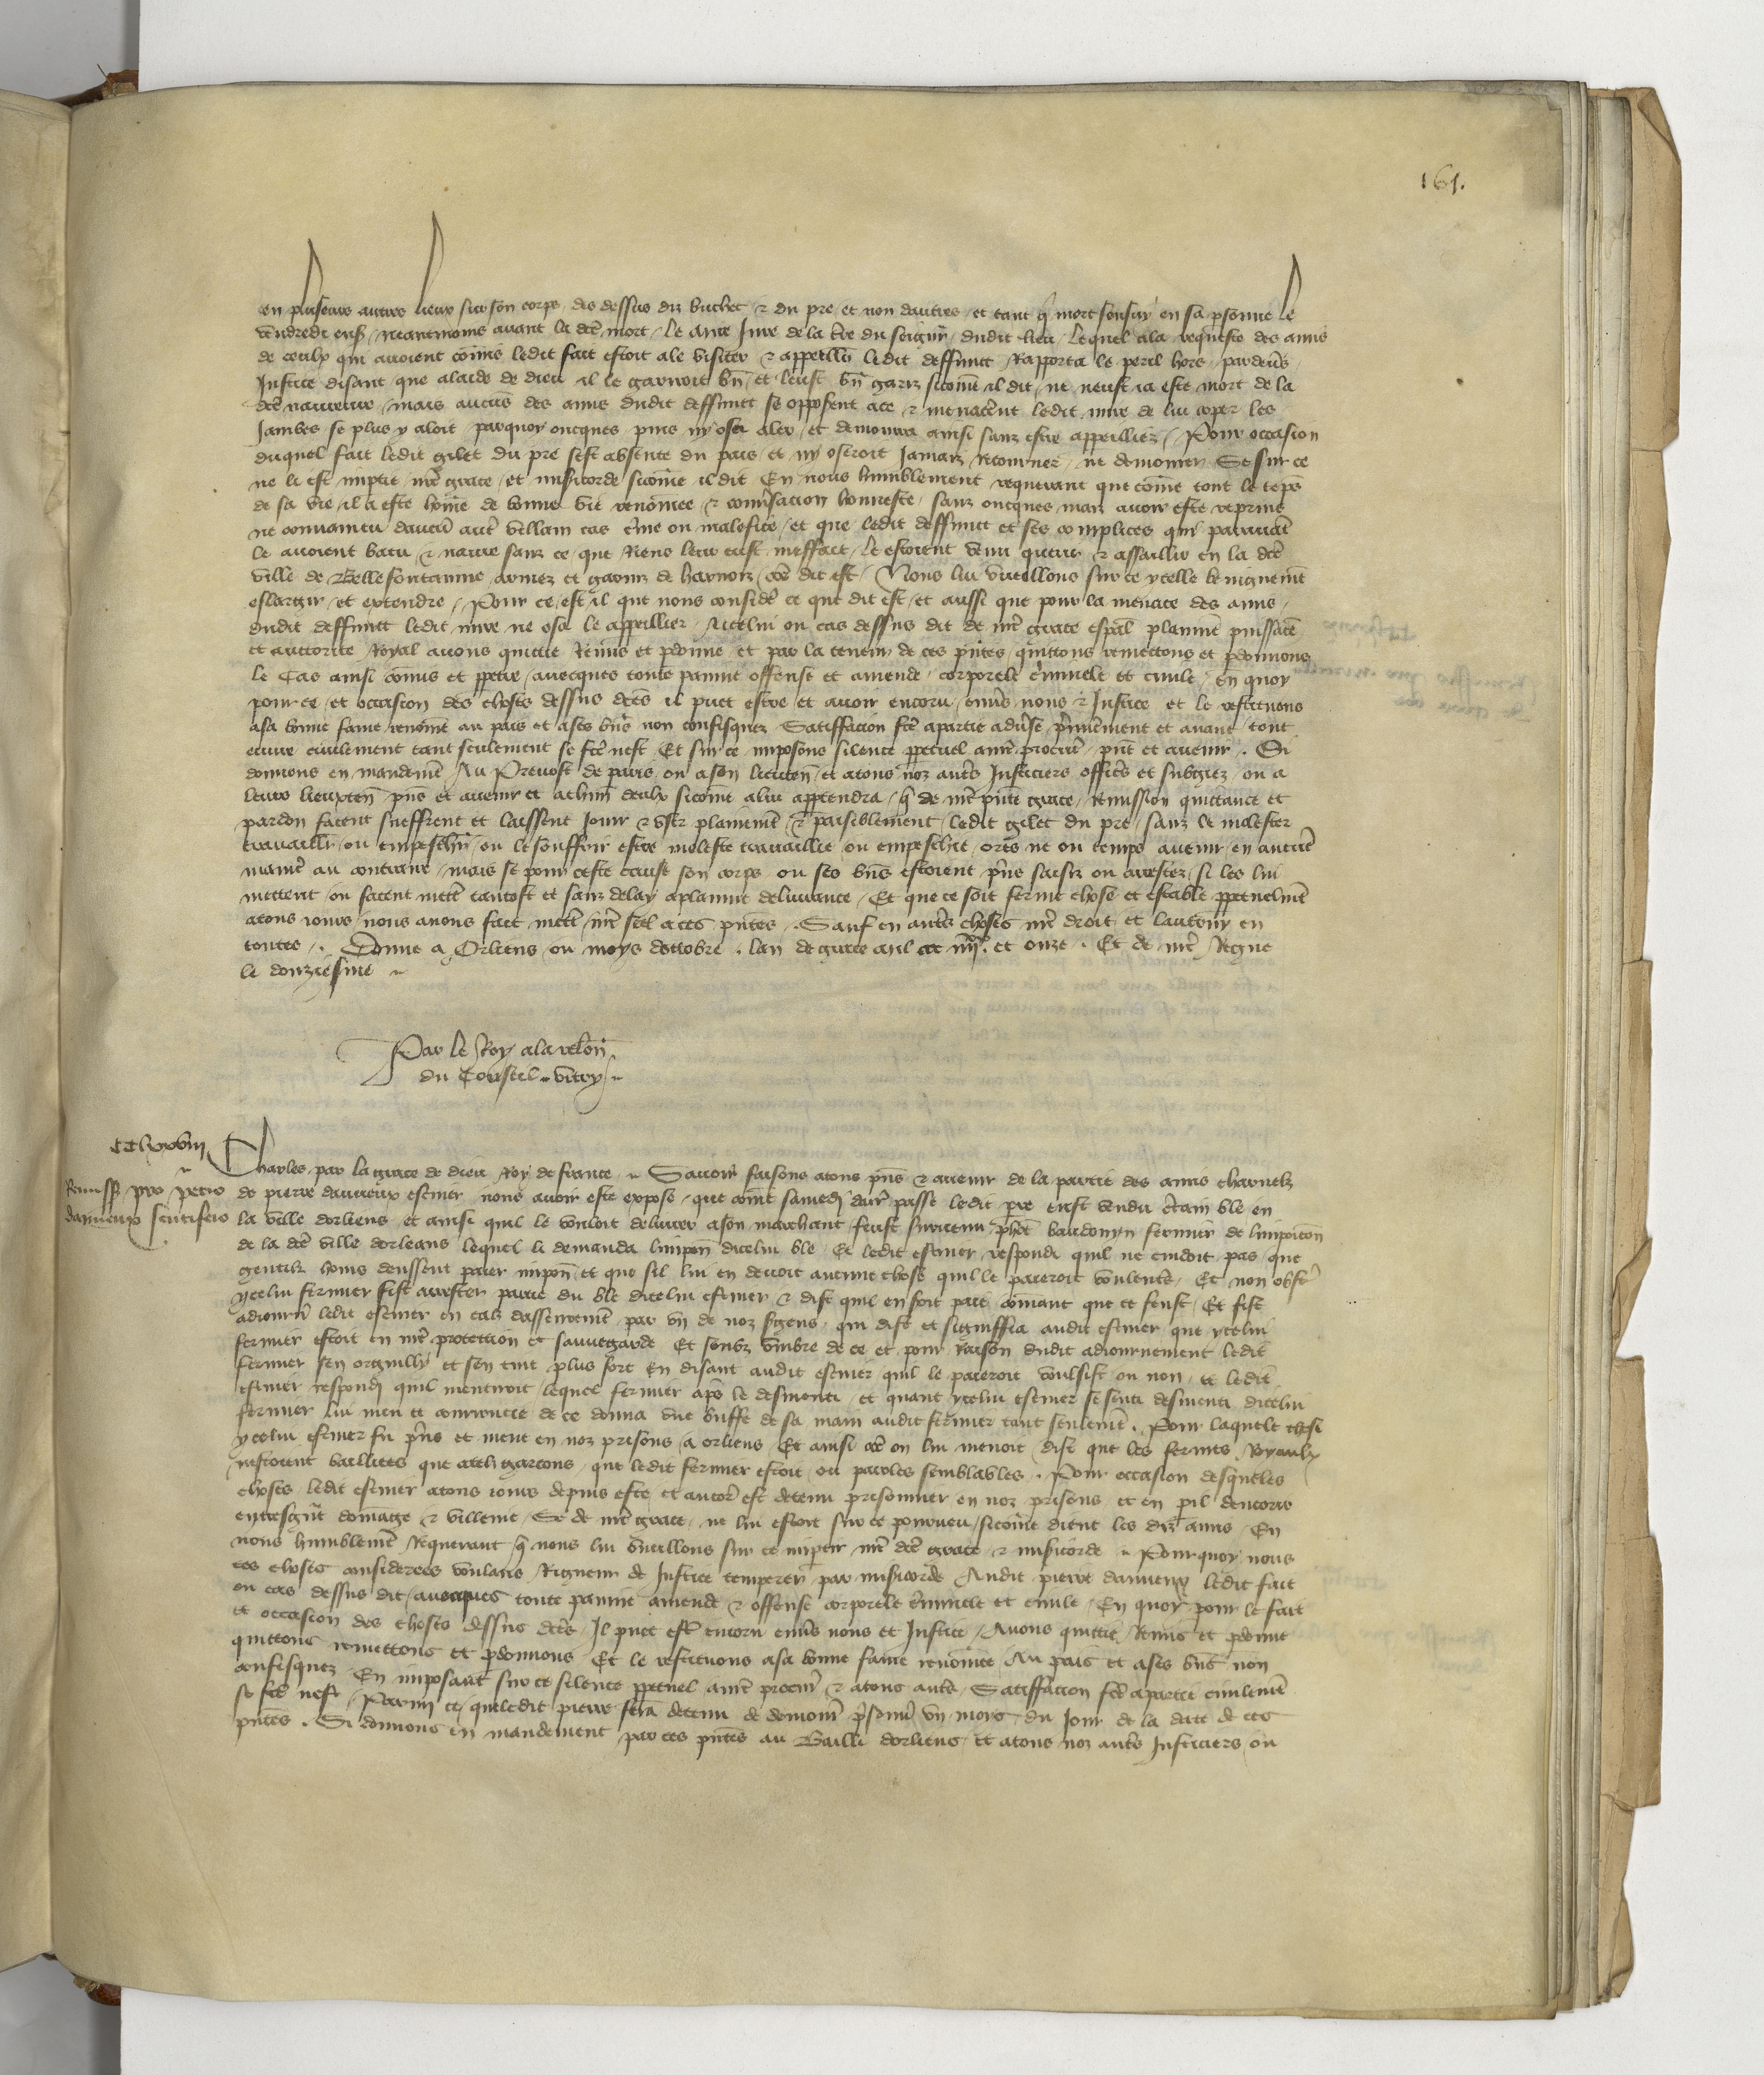 161.
en pluseurs autres lieux sur son corps des dessus diz buchet & du pre et non dautres et tant q̃ mort sensuy en sa p̃sonne le
vendredi ens̃ neantmoins avant la dc̃e mort le mire Jure de la t̃re du seigñr dudit lieu lequel ala requeste des amis
de ceulx qui avoient cõmis ledit fait estoit ale visiter & appeillier ledit deffunct Rapporta le peril hors pardevers
Justice disant que alaide de dieu il le gariroit bñ et leust bñ gariz sicom̃e il dit ne neust ia este mort de la
dc̃e navreure mais aucũs des amis dudit deffunct se opposent ace & menacerent ledit mire de lui coper les
Jambes se plus y aloit parquoy oncques puis ny osa aler et demoura ainsi sanz estre appeilliez Pour occasion
duquel fait ledit gilet du pre sest absente du pais et ny oseroit Jamaiz retourner ne demourer Se sur ce
ne li est imptie nr̃e grace et mis̃icorde sicom̃e il dit En nous humblement requerant que com̃e tout le tẽps
de sa vie il a este hom̃e de bonne vie renom̃ee & conṽsacion honneste sanz oncques maiz avoir este reprins
ne convaincu daucũ autr̃ villain cas crime ou malefice et que ledit deffunct et ses complices qui paravãt
le avoient batu & navre sanz ce que Riens leur eust meffait le estoient venu querir & assaillir en la dc̃e
ville de Bellefontainne armez et garniz de harnoiz cõe dit est Nous lui vueillons sur ce ycelle benignem̃t
eslargir et extendre Pour ce est il que nous consider̃ ce que dit est et aussi que pour la menace des amis
dudit deffunct ledit mire ne osa le appeillier Aicelui ou cas dessus dit de nr̃e grace esp̃al plainne puissãce
et auctorite Royal avons quitte Remis et p̃donne et par la teneur de ces p̃ntes quittons remettons et p̃donnons
le Cas ainsi com̃is et p̃petre avecques toute painne offense et amende corporele crim̃inele et civile en quoy
pour ce et occasion des choses dessus dc̃es il puet estre et avoir encoru enṽs nous & Justice et le restituons
asa bonne fame renom̃ee au pais et ases biẽs non confisquez Satiffacion fc̃e apartie adṽse p̃mierement et avant tout
euvre civilement tant seulement se fc̃e nest Et sur ce imposons silence p̃petuel anr̃e procur̃ p̃nt et avenir . Si
donnons en mandem̃t Au Prevost de paris ou ason lieuteñ et atous noz autr̃s Justiciers officr̃s et subgiez ou a
leurs lieuxteñ p̃ns et avenir et achũn deulx sicom̃e alui app̃tendra q̃ de nr̃e p̃nte grace remission quittance et
pardon facent sueffrent et laissent Jouir & us̃er plainem̃t & paisiblement ledit gilet du pre sanz le molester
travaillr̃ ou empeschr̃ ou le souffrir estre moleste travaillie ou empeschie ores ne ou temps avenir en aucũe
manir̃e au contraire mais se pour ceste cause son corps ou ses biẽs estoient prins saisiz ou arrestez si les lui
mettent ou facent mett̃e tantost et sanz delay aplainne delivrance Et que ce soit ferme chose et estable p̃petuelm̃t
atous iours nous avons fait mett̃e nr̃e seel aces p̃ntes . Sauf en autr̃s choses nr̃e droit et lautruy en
toutes . Donne a Orliens ou moys doctobre . lan de grace mil ccc iiij^xx. et onze . Et de nr̃e Regne
le douziesme
Par le Roy ala relõn
du Conseil . vitry
CClxxviij
Remiss̃ pro petro
dauvieux scutifero
Charles par la grace de dieu Roy de france Savoir faisons atous p̃ns & avenir de la partie des amis charnelz
de pierre dauvieux escuier nous avoir este expose que com̃e samedi derr̃ passe ledit pr̃e eust vendu c̃tain ble en
la ville dorliens et ainsi quil le vouloit delivrer ason marchant feust survenu ph̃ot baudouyn fermier de limpoicõn
de la dc̃e ville dorleans lequel li demanda limpõn dicelui ble Et ledit escuier respondi quil ne cuidoit pas que
gentilz homs deussent paier impõn et que sil lui en devoit aucune chose quil le paieroit voulentr̃s Et non obst̃
ycelui fermier fist arrester partie du ble dicelui escuier & dist quil en soit paie com̃ant que ce feust Et fist
adiourñ ledit escuier en cas dasseurem̃t par un de noz s̃gens qui dist et signiffia audit escuier que ycelui
fermier estoit en nr̃e protection et sauvegarde Et soubz umbre de ce et pour raison dudit adiournement ledit
fermier sen orguilly et sen tint plus fort En disant audit escuier quil le paieroit voulsist ou non et ledit
escuier respondi quil mentiroit lequel fermier apr̃s le desmenti et quant ycelui escuier se senti desmenti dicelui
fermier lui meu et courroucie de ce donna une buffe de sa main audit fermier tant seulem̃t . Pour laquele chose
ycelui escuier fu prins et mene en noz prisons a orliens Et ainsi cõe on lui menoit dist que les fermes Royaulx
nestoient baillees que atelz garcons que ledit fermier estoit ou paroles semblables . Pour occasion desqueles
choses ledit escuier atous iours depuis este et encor̃ est detenu prisonnier en noz prisons et en p̃il dencorre
domãge & villenie Se de nr̃e grace ne lui estoit sur ce pourveu sicom̃e dient les diz amis En
nous humblem̃t Requerant q̃ nous lui vueillons sur ce imp̃tir nr̃e dc̃e grace & mis̃icorde Pourquoy nous
ces choses considerees voulans Rigueur de Justice temperer par mis̃icorde Audit pierre dauvieux ledit fait
ou cas dessus dit avecques toute painne amende & offense corporele crim̃inele et civile En quoy pour le fait
et occasion des choses dessus dc̃es Il puet est̃e encoru enṽs nous et Justice Avons quitte Remis et p̃donne
quittons remettons et p̃donnons Et le restituons asa bonne fame renom̃ee Au pais et ases biẽs non
confisquez En imposant sur ce silence p̃petuel anr̃e procur̃ & atous autr̃s Satiffacion fc̃e apartie civilem̃t
se fc̃e nest Parmi ce queledit pierre sera detenu & demour̃a p̃sonnier un mois du Jour de la date de ces
p̃ntes . Si donnons en mandement par ces p̃ntes au Bailli dorliens et atous noz autr̃s Justiciers ou